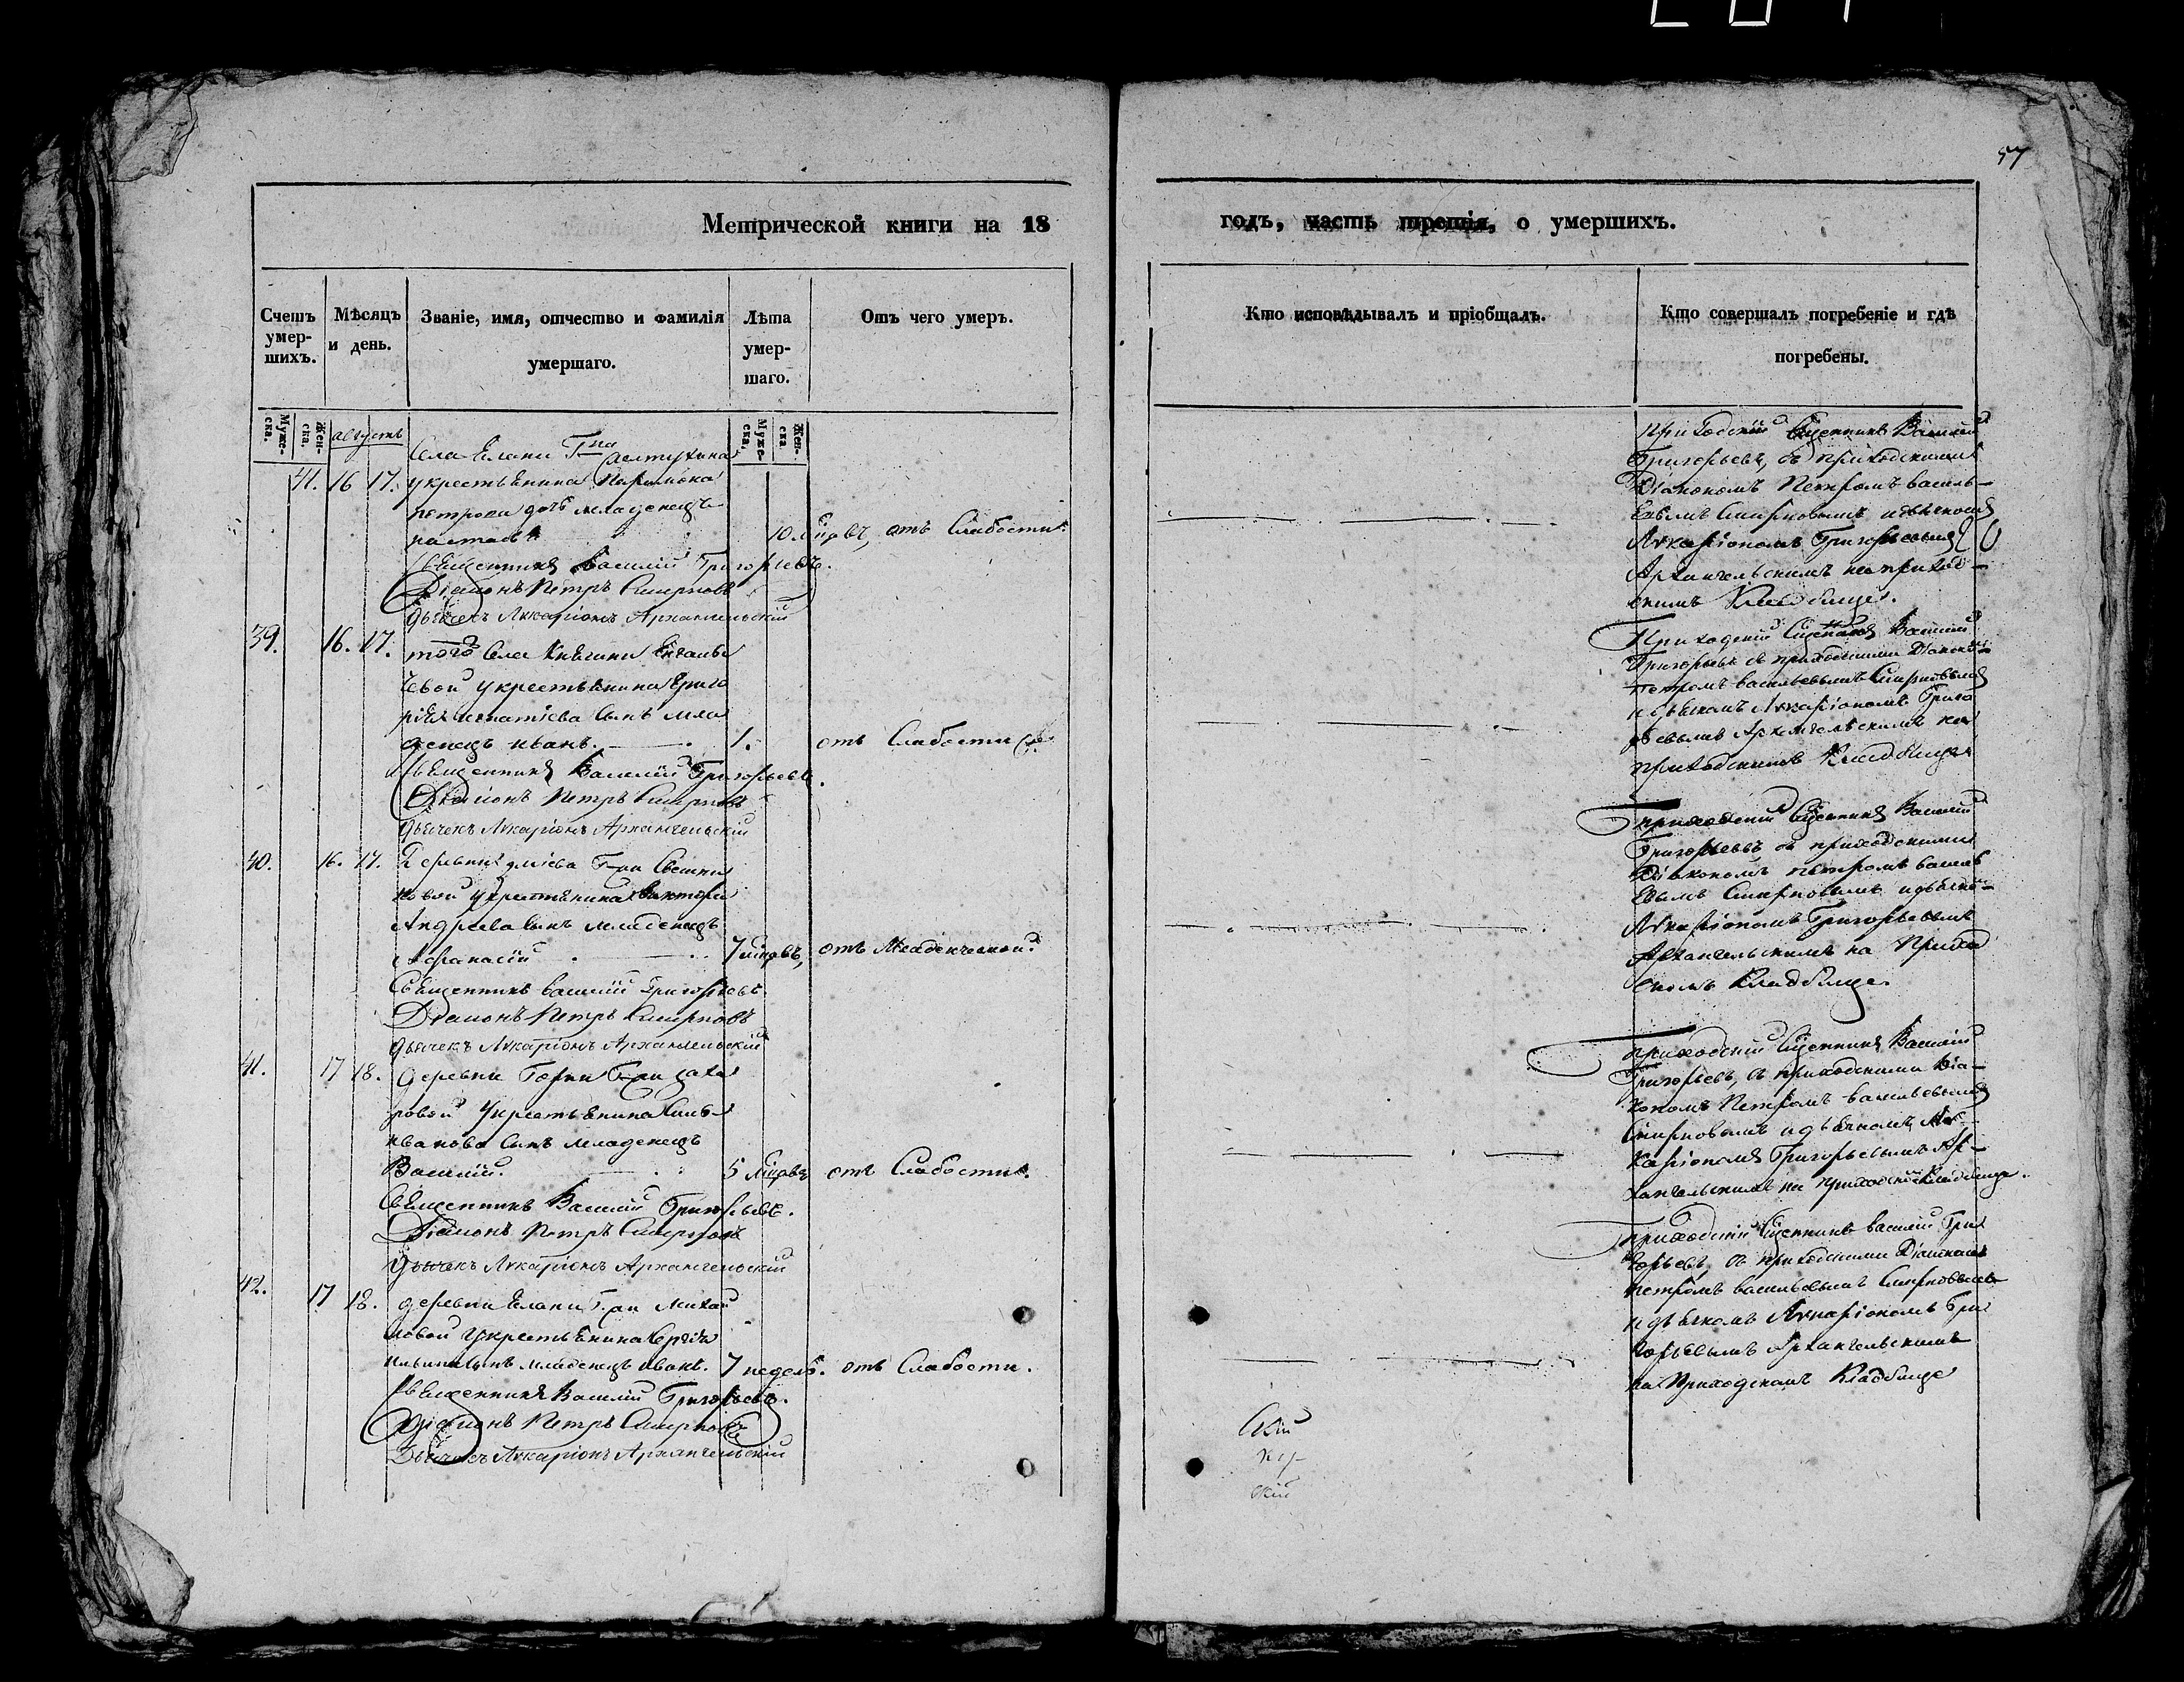 57
Метрической книги на 18
годъ, часть третія, о умершихъ.
Счетъ умер-шихъ.
Мѣсяцъ и день.
Званіе, имя, отчество и фамилія умершаго.
Лѣта умер-шаго.
Отъ чего умеръ.
Кто исповѣдывалъ и пріобщалъ.
Кто совершалъ погребеніе и гдѣ погребены.
Муже-ска.
Жен-ска.
августъ
Муже-ска,
Жен-ска
Села Елани Гна
41. 16 17. укрестьянина
петрова дочь младенецъ
10 мцовъ, отъ Слабости.
Священникъ Василій Григорьевъ.
Діаконъ Петръ Смирновъ
дьячекъ Иларіонъ Архангельскій
Приходскій Сщенникъ Василій
Григорьевъ, съ приходскими
Діакономъ Петромъ василь-
евымъ Смирновымъ идьячкомъ
Иларіономъ Григорьевымъ
Архангельскимъ наприход-
скимъ Кладбище.
39. 16. 17. того Села Княгини
чевой укрестьянина Григо
рія игнатіева Сынъ мла
денецъ иванъ. 1. отъ Слабости
Священникъ Василій Григорьевъ.
Діаконъ Петръ Смирновъ
дьячекъ Иларіонъ Архангельскій
Приходскій Сщенникъ Василій
Григорьевъ съ приходскими Діакономъ
петромъ васильевымъ Смирновымъ
идьячкомъ Иларіономъ Григо
рьевымъ Архангельскимъ на
приходскимъ Кладбище
40. 16. 17. Деревни Гжи
новой укрестьянина виктора
Андреева Сынъ младенецъ
Афанасій 7 мцовъ, отъ Младенческой.
Священникъ василій Григорьевъ.
Діаконъ Петръ Смирновъ
дьячекъ Иларіонъ Архангельскій
приходскій Сщенникъ Василій
Григорьевъ съ приходскими
Діакономъ петромъ василь
евымъ Смирновымъ идьячко-
Иларіономъ Григорьевымъ
Архангельскимъ на Приход
скомъ Кладбище.
41. 17 18. деревни Горки Гжи заха
ровой Укрестьянина
иванова Сынъ младенецъ
Василій. 5 мцовъ отъ Слабости.
Священникъ Василій Григорьевъ.
Діаконъ Петръ Смирновъ
дьячекъ Иларіонъ Архангельскій
приходскій Сщенникъ Василій
Григорьевъ, съ приходскими Діа-
кономъ Петромъ васильевымъ
Смирновымъ идьячкомъ Ил
аріономъ Григорьевымъ Ар-
хангельскимъ на приходск Кладбище.
42. 17 18. деревни Елани Гжи Михай
ловой Укрестьянина Сергія
Сынъ младенецъ иванъ. 7 недель. отъ Слабости.
Священникъ Василій Григорьевъ.
Діаконъ Петръ Смирновъ
Дьячекъ Иларіонъ Архангельскій
приходскій Сщенникъ василій Гри
горьевъ, съ приходскими Діакономъ
петромъ васильевымъ Смирновымъ
идьячкомъ Иларіономъ Гри
горьевымъ Архангельскимъ
на Приходскомъ Кладбище
скій